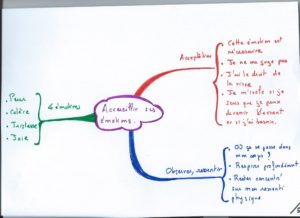 Accueillir ses
émotions.
4 émotions
• Peur
• Colère
• Tristesse
• Joie
Acceptation
• Cette émotion est
nécessaire
• Je ne me juge pas
• J'ai le droit de
la vivre
• Je m'isole si je
sens que je peux
devenir blessant
et si j'ai besoin.
Observer, ressentir
• Où ça se passe dans
mon corps ?
• Respirer profondément
• Rester concentré
sur mon ressenti
physique